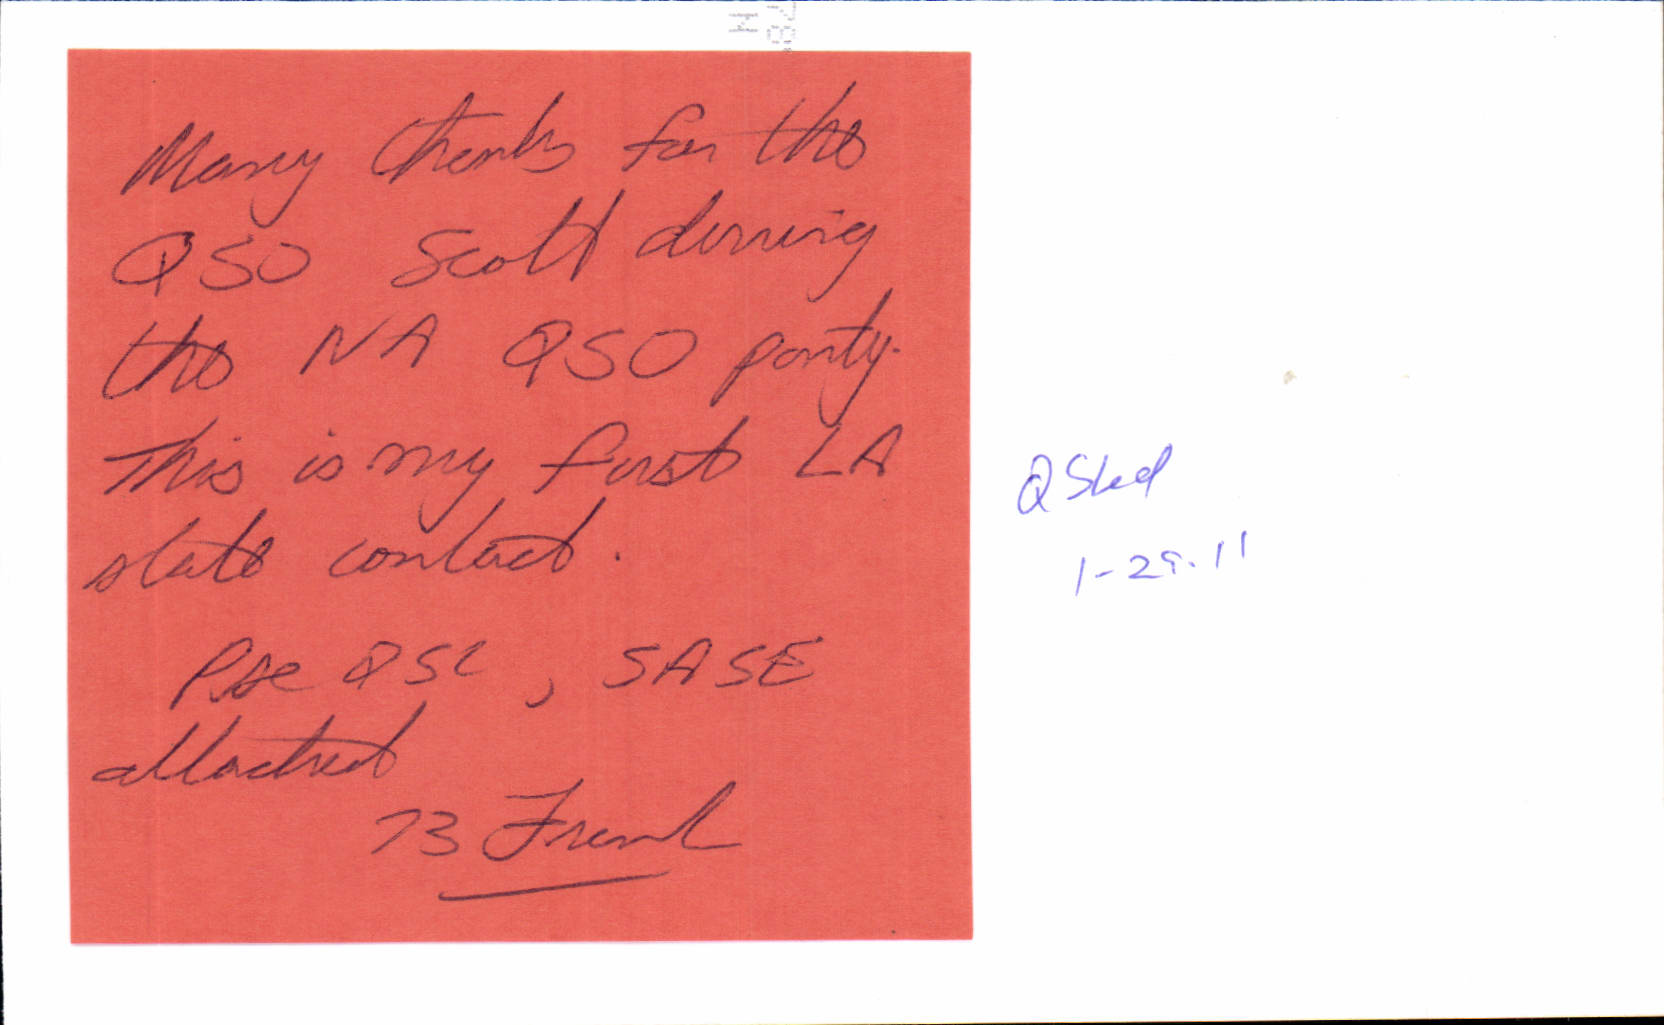 Many thanks for the
QSO Scott during
the NA QSO party.
This is my first LA
state contact.
Pse QSL, SASE
attached
73 Frank
QSled
1-29-11